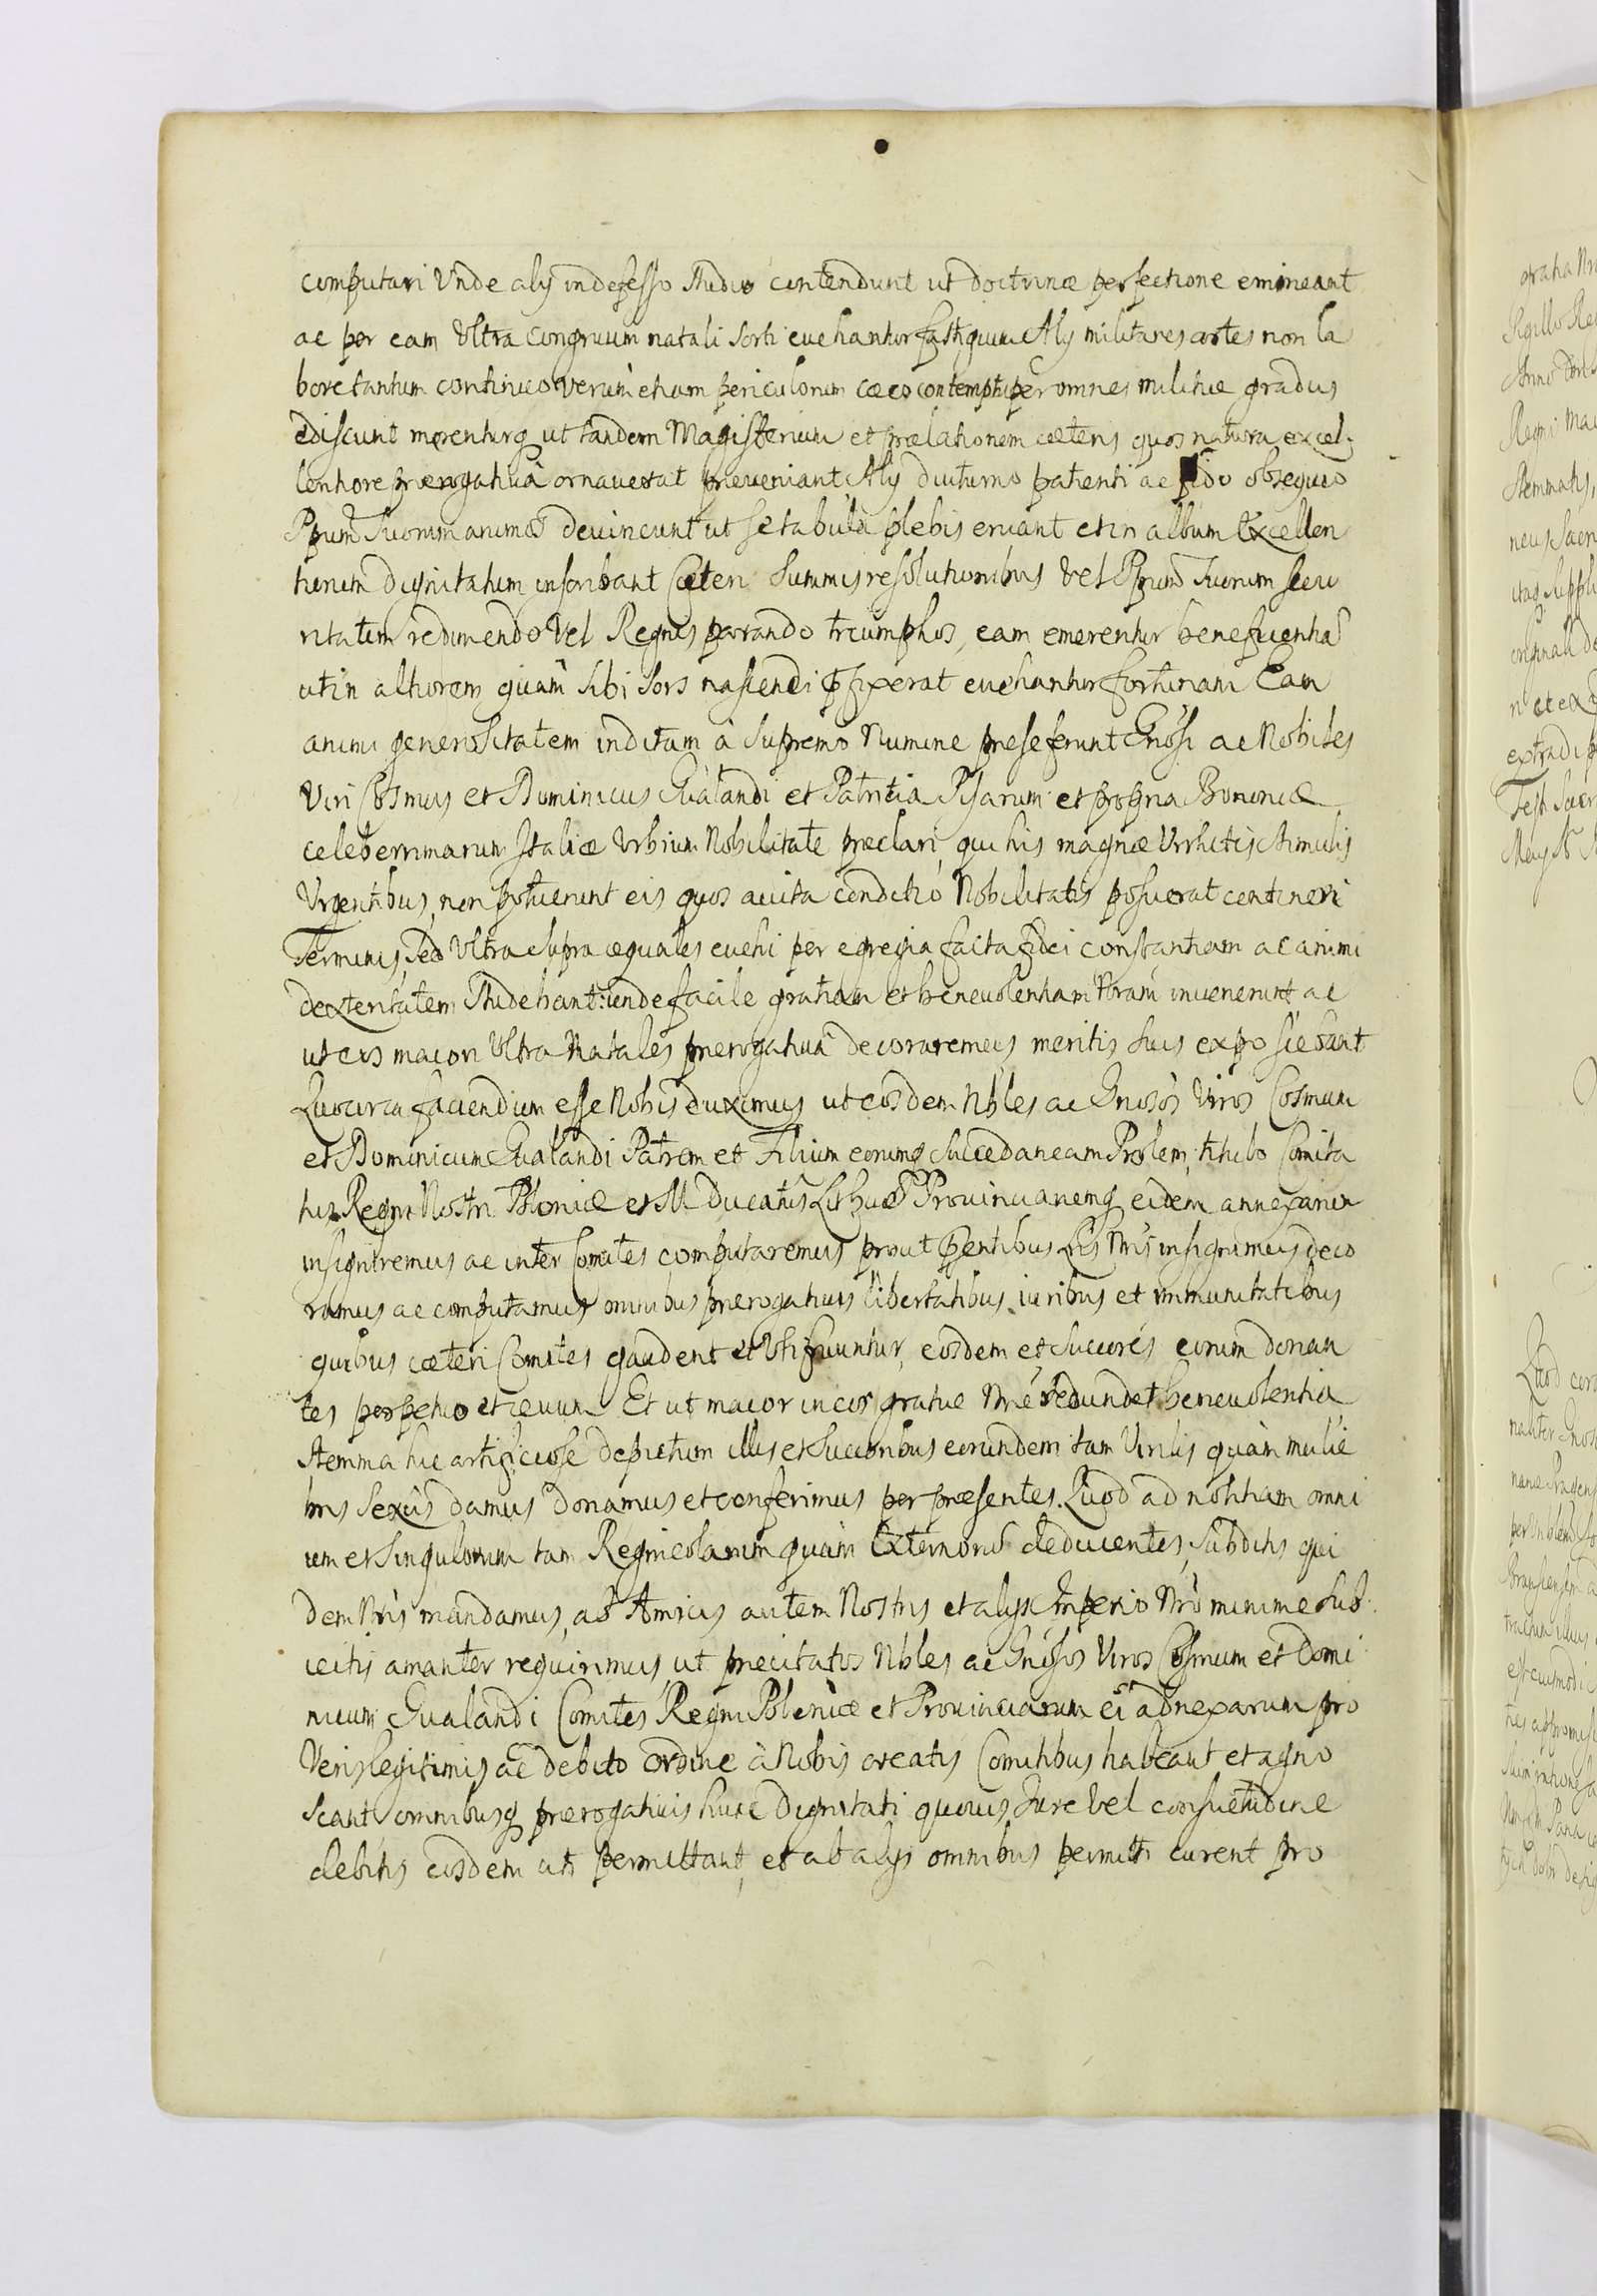 computari Vnde alÿ indefesso studio contendunt ut doctrinæ perfectione emineant
ac per eam Vltra congruum natali sorti euehantur fastigium Alÿ militares artes non la
bore tantum continuo verum etiam periculorum cæco contemptu per omnes militiæ gradus
ediscunt merenturq ut tandem Magisterium et prælationem cæteris quos natura excel-
lentiore prærogatiuà ornauerat preueniant Alÿ diuturno patienti ac fido obsequio
Ppum Suorum animos deuincunt ut se tabulà plebis eruant et in album Excellen
tiorum dignitatum inscribant Cæteri Summis resolutionibus Vel Ppum Suorum secu
ritatem redimendo Vel Regnis parando triumphos, eam emerentur beneficentiã
ut in altiorem quàm sibi sors nascendi pfixerat euehantur fortunam Eam
animi generositatem inditam à Supremo Numine preseferunt Gnosi ac Nobiles
Viri Cosmus et Dominicus Gualandi et Patritia Pisarum et propria Bononiæ
celeberrimarum Italiæ Vrbium Nobilitate preclari, qui his magnæ Virtutis stimulis
Vrgentibus, non potuerunt eis quos auita conditio Nobilitatis posuerat contineri
Terminis, sed Vltra supra æquales euehi per egregia facta fidei constantiam ac animi
dexteritatem Studebant: unde facile gratiam et beneuolentiam Nram inuenerunt ac
ut eos maiori Vltra Natales prerogatiuà decoraremus meritis suis exposcebant
Quocirca faciendum esse Nobis duximus ut eosdem Nbles ac Gnosos Viros Cosmum
et Dominicum Gualandi Patrem et Filium eorumq Succedaneam Prolem, titulo Comita
tus Regni Nostri Poloniæ et M. Ducatus Lithuæ Prouinciarumq eidem annexarum
insigniremus ac inter Comites computaremus prout pntibus Lris Nris insignimus deco
ramus ac computamus omnibus prerogatiuis libertatibus iuribus et immunitatibus
quibus cæteri Comites gaudent et Vti fruuntur, eosdem et Succores eorum donan
tes perpetuo et æuum Et ut maior in eos gratiæ Nræ redundet beneuolentia
Stemma hic artificiose depictum illis et Succoribus eorundem tam Virilis quàm mulie
bris Sexûs damus donamus et conferimus per præsentes. Quod ad notitiam omni
um et Singulorum tam Regnicolarum quàm Externorũ deducentes, Subditis qui
dem Nris mandamus, ab Amicis autem Nostris et alÿs Imperio Nro minime Sub
iectis amanter requirimus, ut precitatos Nbles ac Gnosos Viros Cosmum et Domi
nicum Gualandi Comites Regni Poloniæ et Prouinciarum ei adnexarum pro
Veris legitimis ac debito ordine à Nobis creatis Comitibus habeant et agno
scant omnibusq prerogatiuis huic Dignitati quouis Jure Vel consuetudine
debitis eosdem uti permittant, et ab alÿs omnibus permitti curent pro